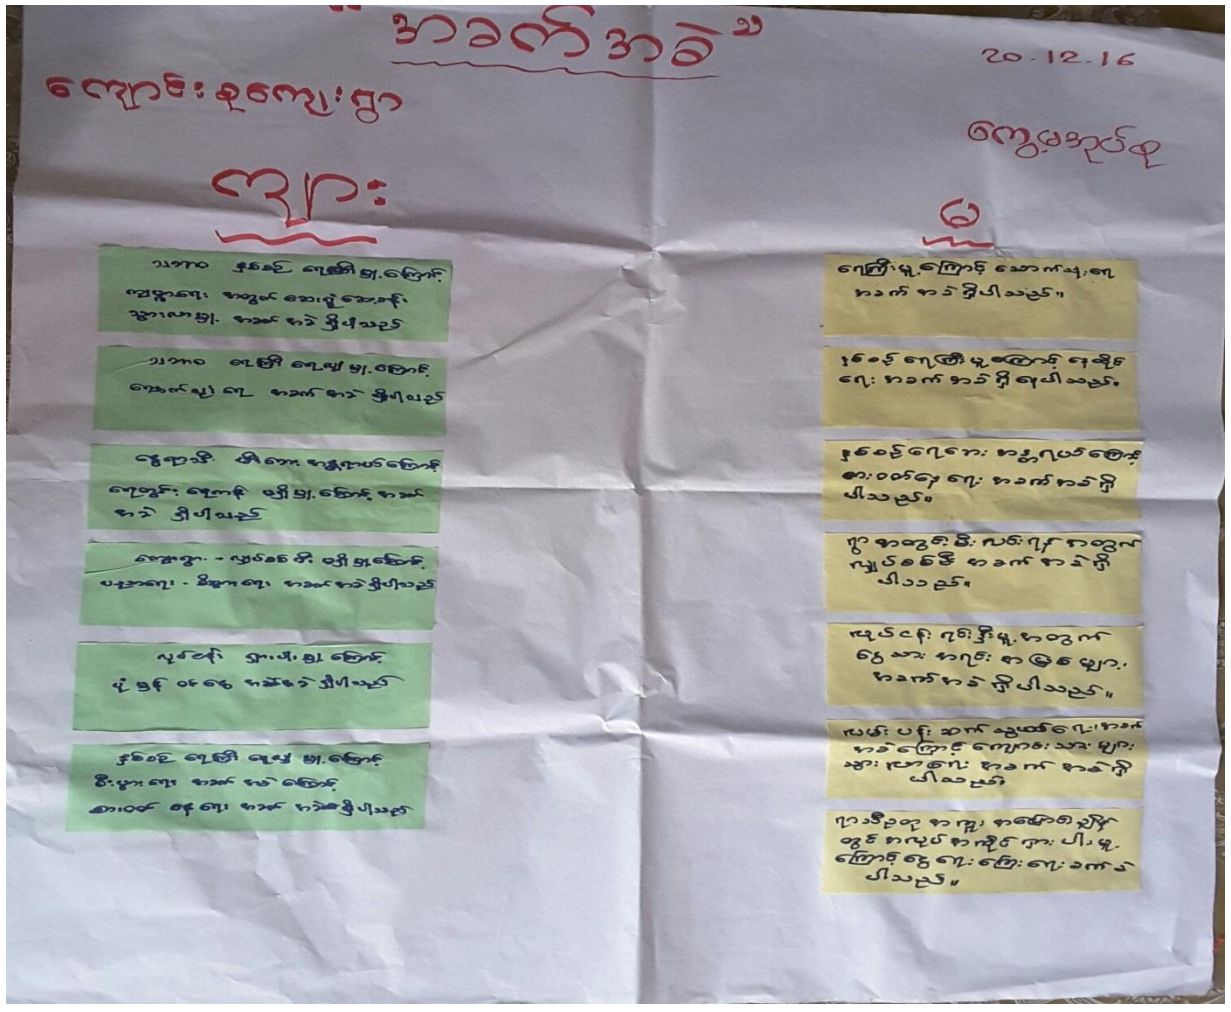 "အခက်အခဲ"
20.12.16
ကျောင်းစုကျေးရွာ
ကျား
သဘာဝ နှစ်စဉ် ရေကြီးမှု့ကြောင့်
ကျမ္မာရေး အတွက် ဆေးရုံဆေးခန်း
သွားလာမှု့ အခက် အခဲ ရှိပါသည်
သဘာဝ ရေကြီး ရေလျှံ မှု့ကြောင့်
သောက်သုံးရေ အခက် အခဲ ရှိပါသည်
နွေရာသီ မီးဘေး အန္တရာယ်ကြောင့်
ရေတွင်း ရေကန် မရှိမှု့ကြောင့် အခက်
အခဲ ရှိပါသည်
ကျေးရွာ - လျှပ်စစ်မီး မရှိမှု့ကြောင့်
ပညာရေး - စီးပွားရေး အခက်အခဲရှိပါသည်
လုပ်ငန်း ရှားပါးမှု့ကြောင့်
ပုံမှန် ဝင်ငွေ အခက်အခဲ ရှိပါသည်
နှစ်စဉ် ရေကြီး ရေလျှံ မှု့ကြောင့်
စီးပွားရေး အခက် အခဲ ကြောင့်
စားဝတ် နေရေး အခက် အခဲရှိပါသည်
မ
ရေကြီးမှု့ကြောင့် သောက်သုံးရေ
အခက် အခဲ ရှိပါသည်။
နှစ်စဉ် ရေကြီးမှု့ကြောင့် နေထိုင်
ရေး အခက် အခဲ ရှိနေပါသည်။
နှစ်စဉ်ရေဘေး အန္တရာယ်ကြောင့်
စားဝတ်နေရေး အခက် အခဲရှိ
ပါသည်။
ရွာ အတွင်း မီးလင်းရန် အတွက်
လျှပ်စစ်မီး အခက် အခဲရှိ
ပါသည်။
လုပ်ငန်း ရင်းနှီးမှု့အတွက်
ငွေသား အရင်း အမြစ်များ
အခက်အခဲ ရှိပါသည်။
လမ်း ပန်း ဆက်သွယ်ရေး အခက်
အခဲကြောင့် ကျောင်းသား များ
သွားလာရေး အခက် အခဲရှိ
ပါသည်။
ရာသီဥတု အကူး အပြောင်းချိန်
တွင် အလုပ်အကိုင် ရှားပါးမှု့
ကြောင့် ငွေရေးကြေးရေး ခက်ခဲ
ပါသည်။